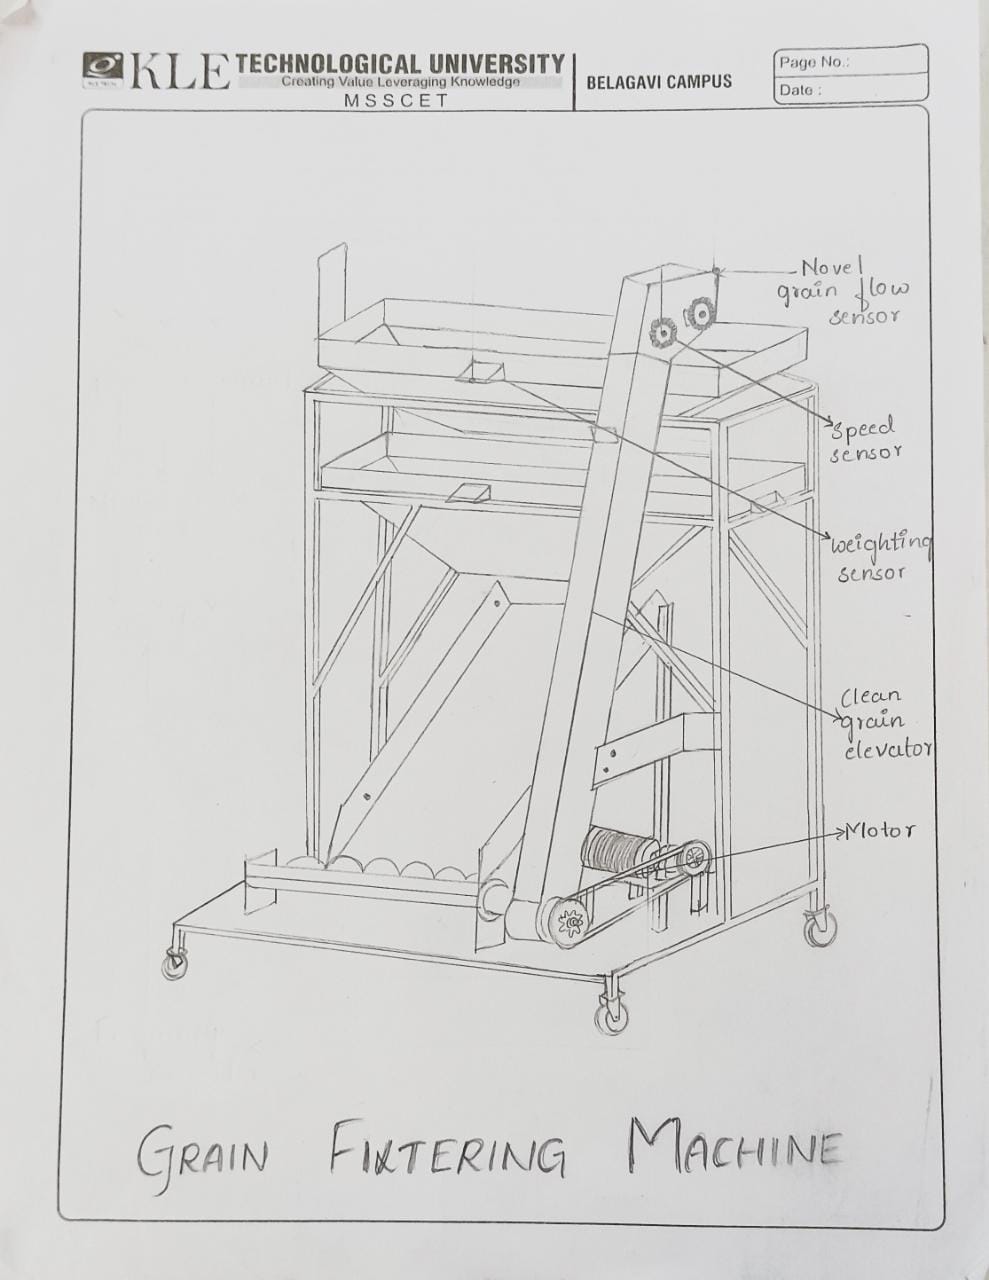 KLE TECHNOLOGICAL UNIVERSITY
Creating Value Leveraging Knowledge
MSSCET
BELAGAVI CAMPUS
Page No.:
Date :
Novel
grain flow
sensor
speed
sensor
weighting
sensor
Clean
grain
elevator
Motor
GRAIN FIXTERING MACHINE